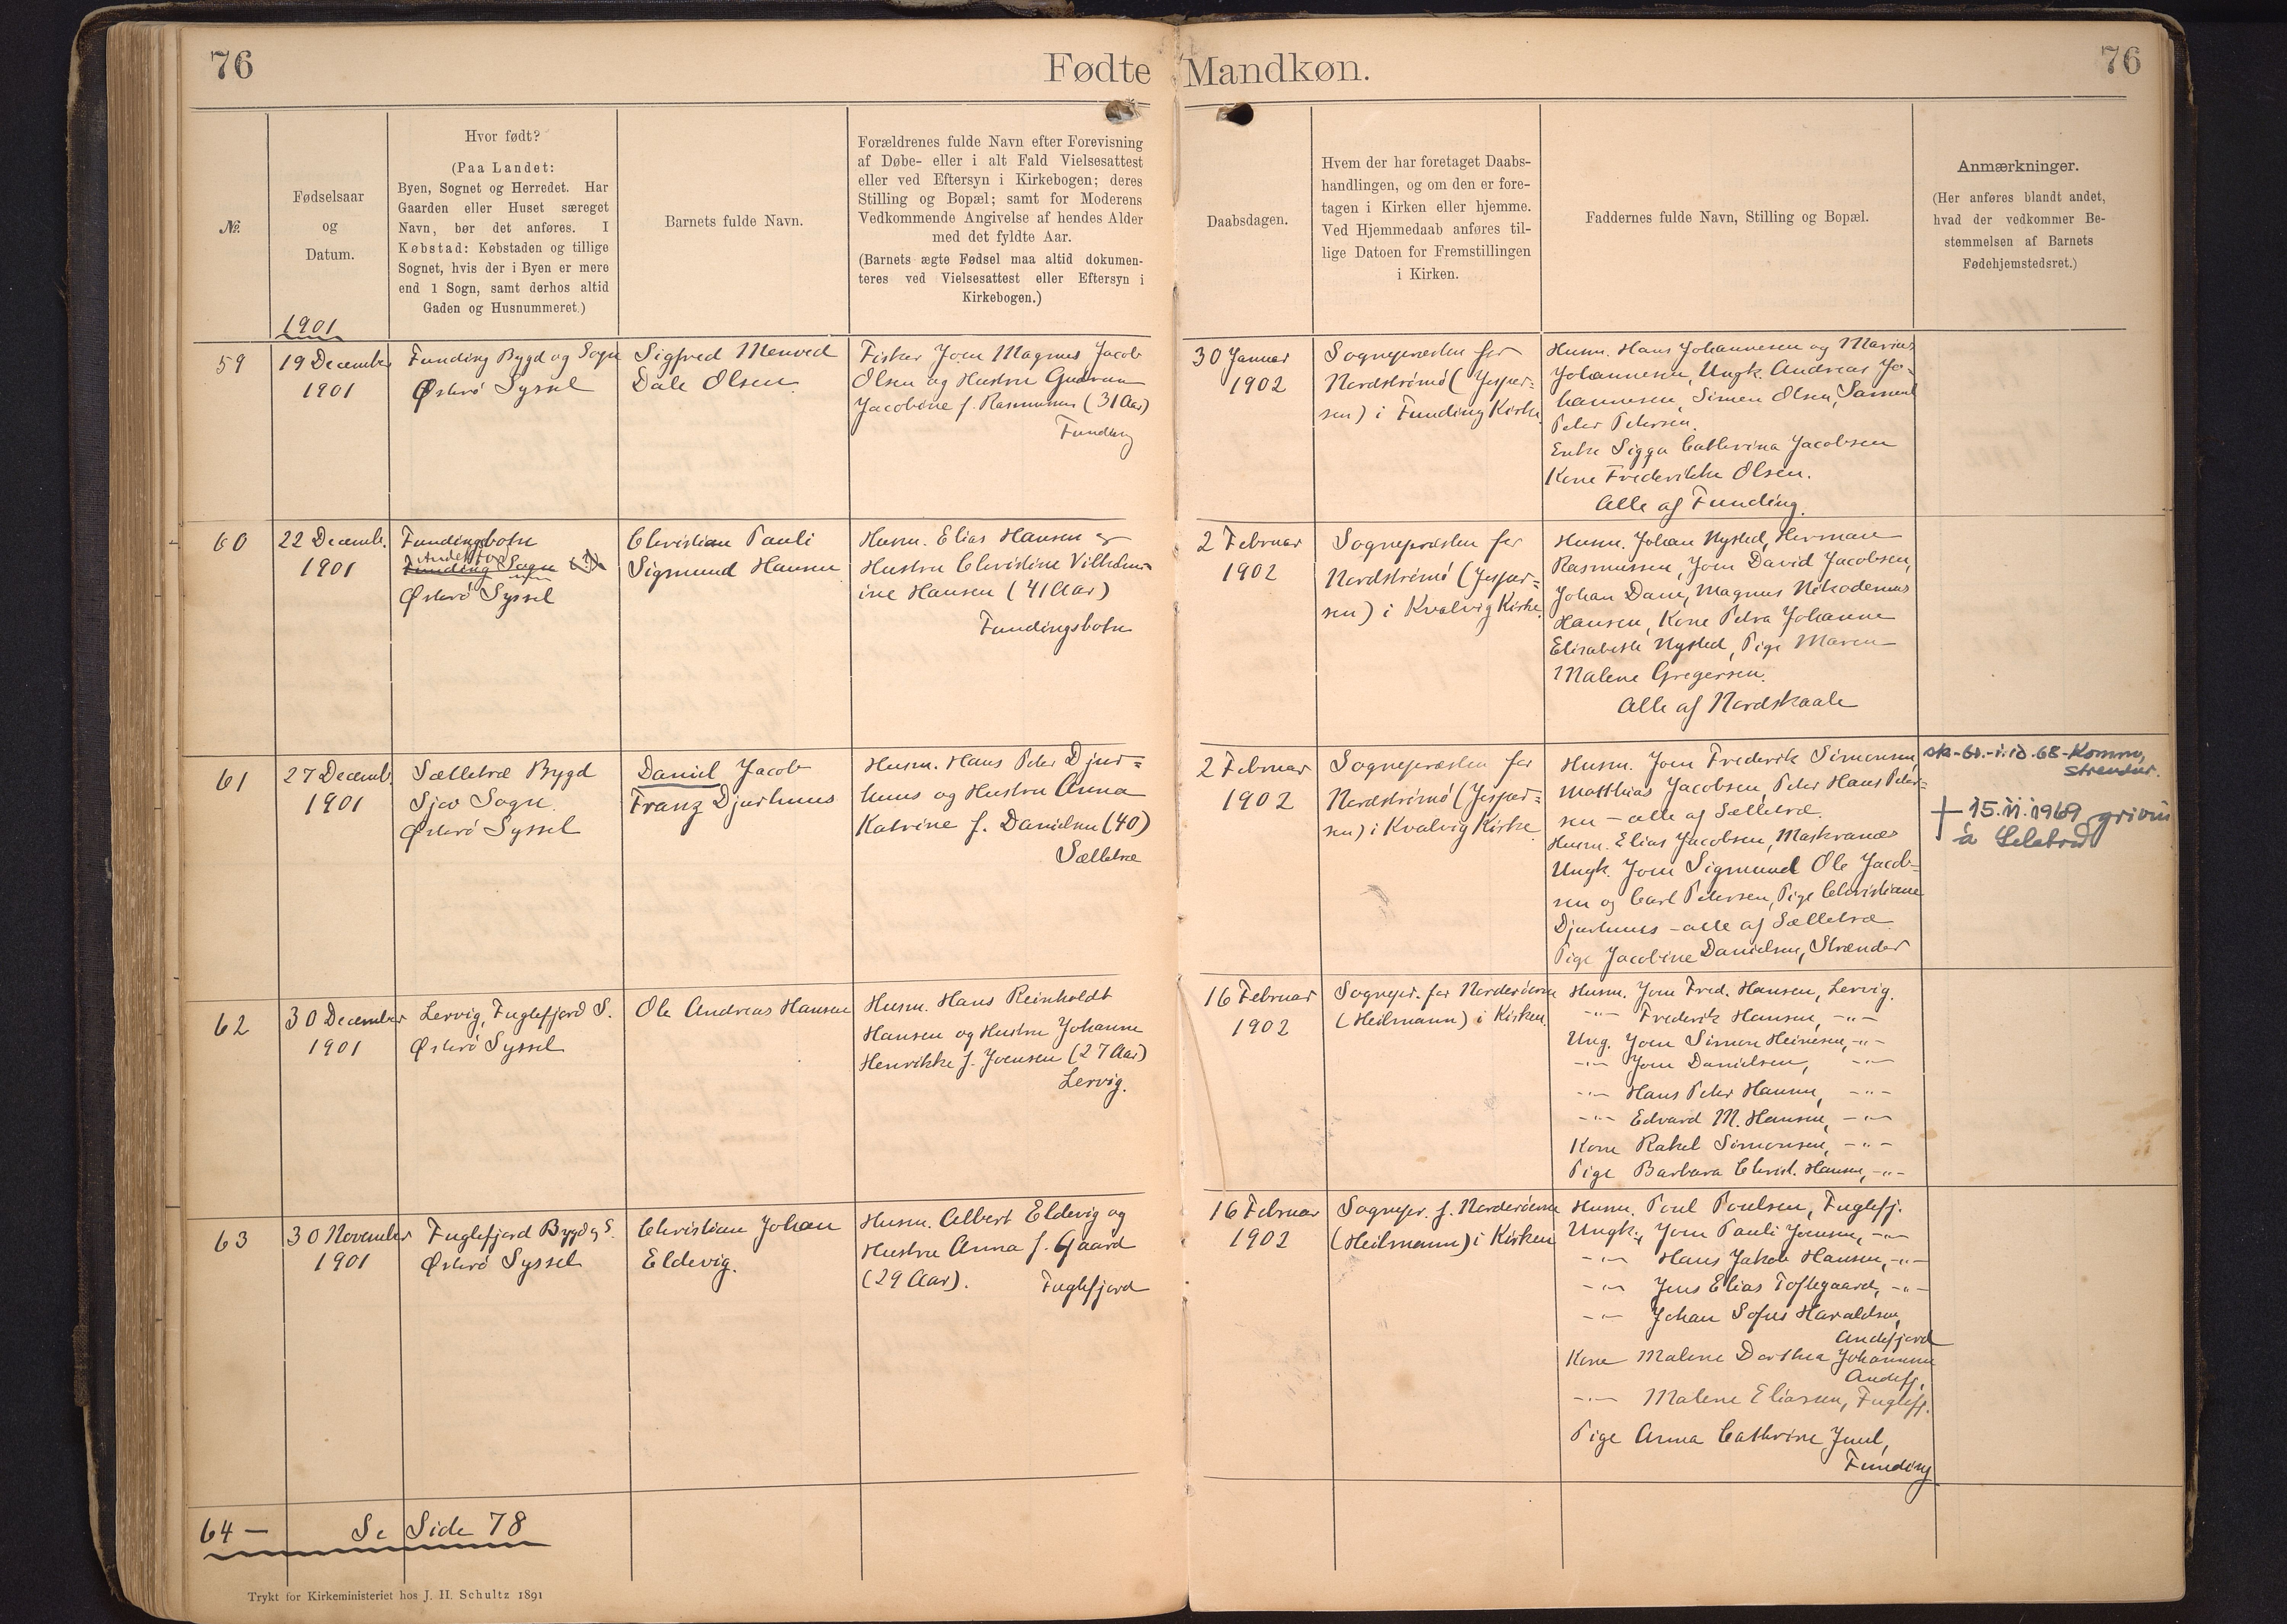 76
Fødte
Mandkøn.
76
№.
Fødselsaar
og
Datum.
Hvor født?
(Paa Landet:
Byen, Sognet og Herredet. Har
Gaarden eller Huset særeget
Navn, bør det anføres. I
Købstad: Købstaden og tillige
Sognet, hvis der i Byen er mere
end 1 Sogn, samt derhos altid
Gaden og Husnummeret.)
Barnets fulde Navn.
Forældrenes fulde Navn efter Forevisning
af Døbe- eller i alt Fald Vielsesattest
eller ved Eftersyn i Kirkebogen; deres
Stilling og Bopæl; samt for Moderens
Vedkommende Angivelse af hendes Alder
med det fyldte Aar.
(Barnets ægte Fødsel maa altid dokumen-
teres ved Vielsesattest eller Eftersyn i
Kirkebogen.)
Daabsdagen.
Hvem der har foretaget Daabs-
handlingen, og om den er fore-
tagen i Kirken eller hjemme.
Ved Hjemmedaab anføres til-
lige Datoen for Fremstillingen
i Kirken.
Faddernes fulde Navn, Stilling og Bopæl.
Anmærkninger.
(Her anføres blandt andet,
hvad der vedkommer Be-
stemmelsen af Barnets
Fødehjemstedsret.)
1901
59
19 December
1901
Funding Bygd og Sogn
Østerø Syssel
Sigfred Menved
Dale Olsen
Fisker Joen Magnus Jacob
Olsen og Hustru Gudrun
Jacobine f. Rasmussen (31 Aar)
Funding
30 Januar
1902
Sognepræsten for
Nordstrømø (Jesper=
sen) i Funding Kirke
Husm. Hans Johannesen og Marius
Johannesen, Ungk. Andreas Jo-
hannesen, Simen Olsen, Samuel
Peter Petersen.
Enke Sigga Cathrina Jacobsen
Kone Frederikke Olsen.
Alle af Funding.
60
22 Decemb.
1901
Fundingsbotn
Andefjord
Funding Sogn
Østerø Syssel
Christian Pauli
Sigmund Hansen
Husm. Elias Hansen og
Hustru Christine Vilhelm-
ine Hansen (41 Aar)
Fundingsbotn
2 Februar
1902
Sognepræsten for
Nordstrømø (Jesper=
sen) i Kvalvig Kirke
Husm. Johan Nysted, Herman
Rasmussen, Joen David Jacobsen,
Johan Dam, Magnus Nikodemus
Hansen, Kone Petra Johanne
Elisabeth Nysted, Pige Maren
Malene Gregersen.
Alle af Nordskaale
61
27 Decemb.
1901
Sælletræ Bygd
Sjov Sogn
Østerø Syssel
Daniel Jacob
Franz Djurhuus
Husm. Hans Peter Djur=
huus og Hustru Anna
Katrine f. Danielsen (40)
Sælletræ
2 Februar
1902
Sognepræsten for
Nordstrømø (Jesper=
sen) i Kvalvig Kirke
Husm. Joen Frederik Simonsen,
Matthias Jacobsen, Peter Hans Peter=
sen - alle af Sælletræ.
Husm. Elias Jacobsen, Morkranæs
Ungk. Joen Sigmund Ole Jacob-
sen og Carl Petersen, Pige Christiane
Djurhuus - alle af Sælletræ
Pige Jacobine Danielsen, Strænder
Strendur.
+ 15.11.1969 grivin
á Selatrað
62
30 December
1901
Lervig, Fuglefjord S.
Østerø Syssel
Ole Andreas Hansen
Husm. Hans Reinholdt
Hansen og Hustru Johanne
Henrikke f. Joensen (27 Aar)
Lervig.
16 Februar
1902
Sognepr. for Norderøerne
(Heilmann) i Kirken.
Husm. Joen Fred. Hansen, Lervig.
-"- Frederik Hansen, -"-
Ung. Joen Simon Heinesen, -"-
-"- Joen Danielsen, -"-
-"- Hans Peter Hansen, -"-
-"- Edvard M. Hansen, -"-
Kone Rakel Simonsen, -"-
Pige Barbara Christ. Hansen, -"-
63
30 November
1901
Fuglefjord Bygd og S.
Østerø Syssel
Christian Johan
Eldevig.
Husm. Albert Eldevig og
Hustru Anna f. Gaard
(29 Aar).
Fuglefjord
16 Februar
1902
Sognepr. f. Norderøerne
(Heilmann) i Kirken
Husm. Poul Poulsen, Fuglefj.
Ungk., Joen Pauli Joensen, -"-
-"- Hans Jakob Hansen, -"-
-"- Jens Elias Toftegaard, -"-
-"- Johan Sofus Haraldsen,
Andefjord
Kone Malene Dorthea Johannesen
Andefj.
-"- Malene Eliasen, Fuglefj.
Pige Anna Cathrine Juul,
Funding
64 - Se Side 78
Trykt for Kirkeministeriet hos J. H. Schultz 1891